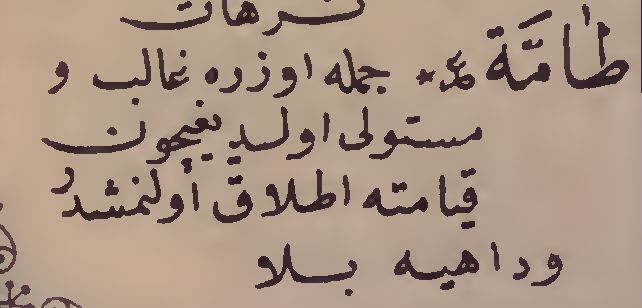 ترهات
طامَّة عد جمله اوزره غالب و
مستولى اولديغيچون
قيامته اطلاق أولنمشدر
وداهيه بلا